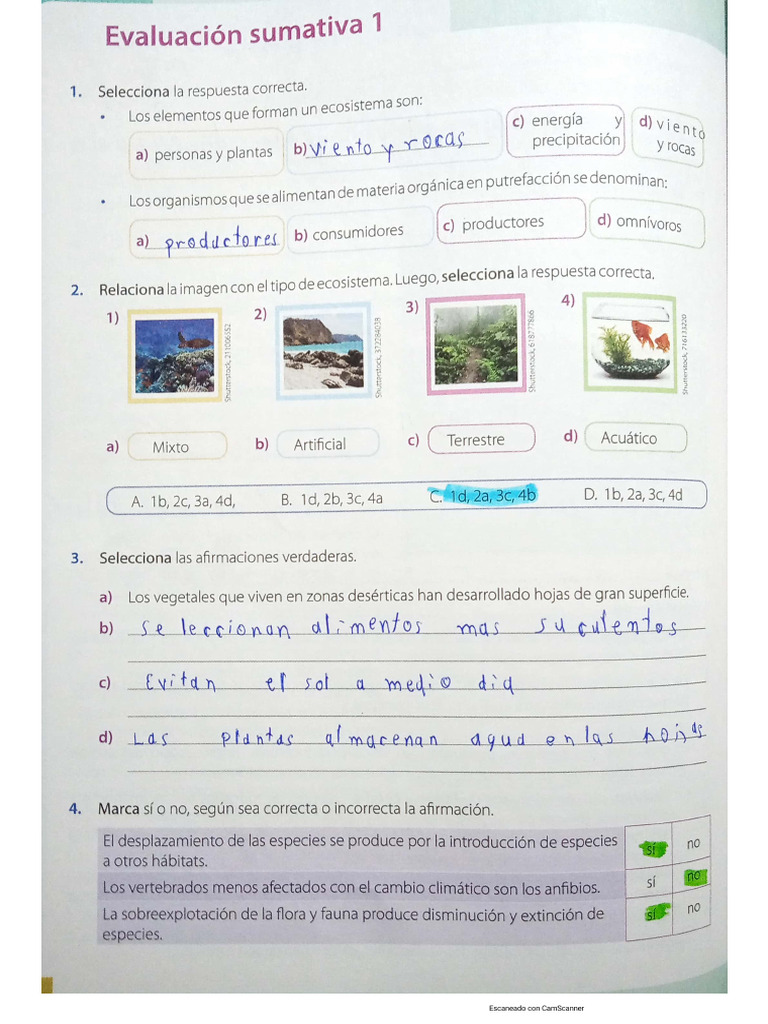 Evaluación sumativa 1
1. Selecciona la respuesta correcta.
• Los elementos que forman un ecosistema son:
a) personas y plantas b) viento y rocas c) energía y precipitación d) viento y rocas
• Los organismos que se alimentan de materia orgánica en putrefacción se denominan:
a) productores b) consumidores c) productores d) omnívoros
2. Relaciona la imagen con el tipo de ecosistema. Luego, selecciona la respuesta correcta.
1) 2) 3) 4)
Shutterstock, 211006552 Shutterstock, 372284038 Shutterstock, 618777866 Shutterstock, 716133220
a) Mixto b) Artificial c) Terrestre d) Acuático
A. 1b, 2c, 3a, 4d, B. 1d, 2b, 3c, 4a C. 1d, 2a, 3c, 4b D. 1b, 2a, 3c, 4d
3. Selecciona las afirmaciones verdaderas.
a) Los vegetales que viven en zonas desérticas han desarrollado hojas de gran superficie.
b) seleccionan alimentos mas suculentos
c) Evitan el sol a medio dia
d) Las plantas almacenan agua en las hojas
4. Marca sí o no, según sea correcta o incorrecta la afirmación.
El desplazamiento de las especies se produce por la introducción de especies
a otros hábitats. sí no
Los vertebrados menos afectados con el cambio climático son los anfibios. sí no
La sobreexplotación de la flora y fauna produce disminución y extinción de
especies. sí no
Escaneado con CamScanner